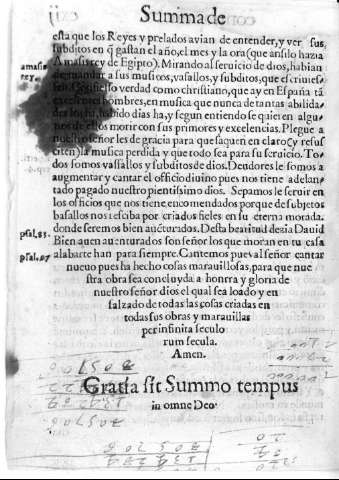 Summa de
esta que los Reyes y prelados avian de entender, y ver sus
subditos en q̃ gastan el año, el mes y la ora (que ansi lo hazia
Amasis rey de Egipto). Mirando al seruicio de dios, habian
amasis
rey.
de mandar a sus musicos, vasallos, y subditos, que
verdad como christiano, que ay en España tã
hombres, en musica que nunca de tantas abilida
habido dias ha, y segun entiendo se quieren algu
nos de ellos morir con sus primores y excelencias. Plegue a
nuestro señor les de gracia para que saquen en claro (y resus
citen) la musica perdida y que todo sea para su seruicio. To
dos somos vasallos y subditos de dios. Deudores le somos a
augmentar y cantar el officio diuino pues nos tiene adelan
tado pagado nuestro pientissimo dios. Sepamos le seruir en
los officios que nos tiene encomendados porque de subjetos
basallos nos resciba por criados fieles en su eterna morada.
donde seremos bien auẽturados. Desta beatitud dezia Dauid
psal. 83.
Bien auen auenturados son señor los que moran en tu casa
psal. 97
alabarte han para siempre. Cantemos pues al señor cantar
nueuo pues ha hecho cosas marauillosas, para que nue
stra obra sea concluyda a honrra y gloria de
nuestro señor dios el qual sea loado y en
salzado de todas las cosas criadas en
todas sus obras y marauillas
per infinita seculo
rum secula.
Amen.
Gratia sit Summo tempus
in omne Deo.